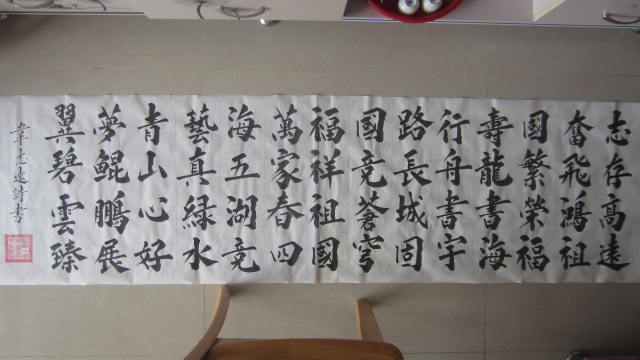 志存高遠
奮飛鴻祖
國繁榮福
壽龍書海
行舟書宇
路長城固
國竞蒼穹
福祥祖國
萬家春四
海五湖竞
藝真緑水
青山心好
夢鯤鵬展
翼碧雲臻
韋志遠詩書